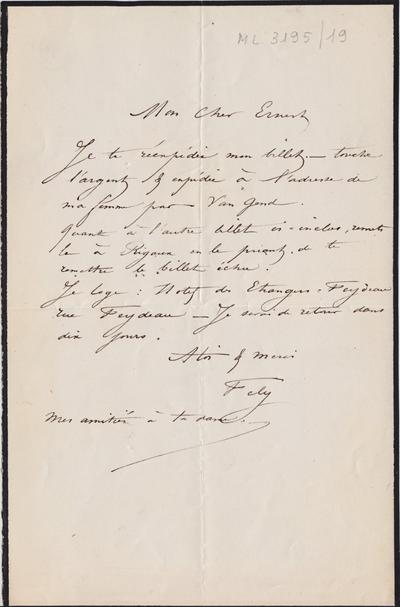 ML 3195/19
Mon Cher Ernest
Je te réexpédie mon billet – touche
l'argent & expédie à l'adresse de
ma femme par Van Gend.
Quant à l'autre billet ci-inclus, remets
le à Rigaux en le priant de te
remettre le billet échu.
Je loge : Hotel des Etrangers-Feydeau
rue Feydeau – Je serai de retour dans
dix jours.
A toi & merci
Fély
Mes amitiés à ta dame.